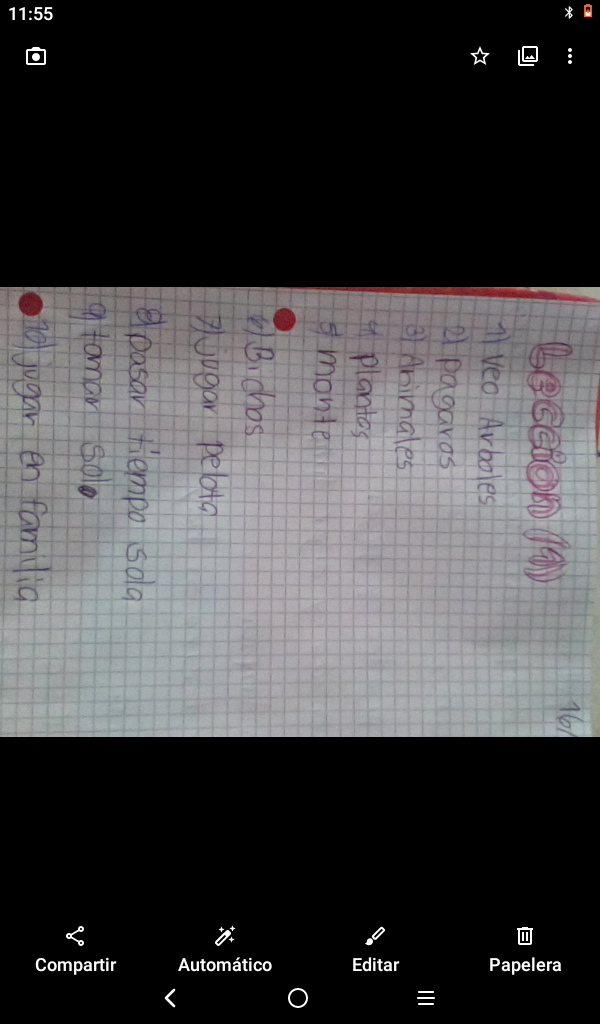 11:55
Leccion (19)
16/
1) Veo Arboles
2) pagaros
3) Animales
4) plantas
5) monte
6) Bichos
7) jugar pelota
8) pasar tiempo sola
9) tomar sol
10) jugar en familia
Compartir
Automático
Editar
Papelera